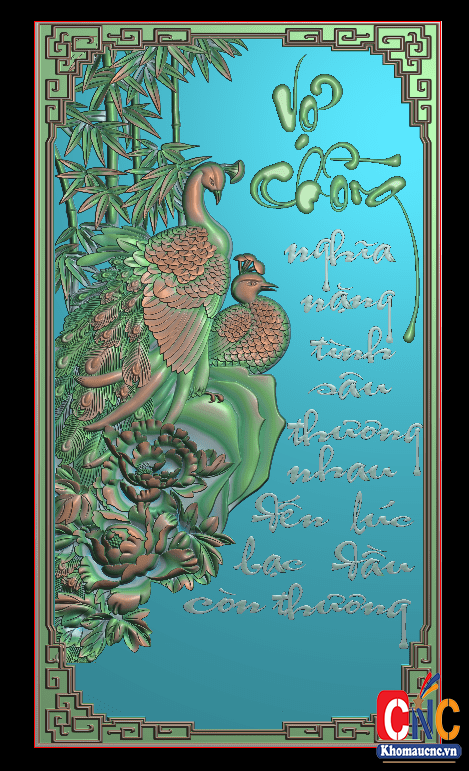 Vợ
Chồng
nghĩa
nặng
tình
sâu
thương
nhau
Đến lúc
bạc Đầu
còn thương
CNC
Khomaucnc.vn